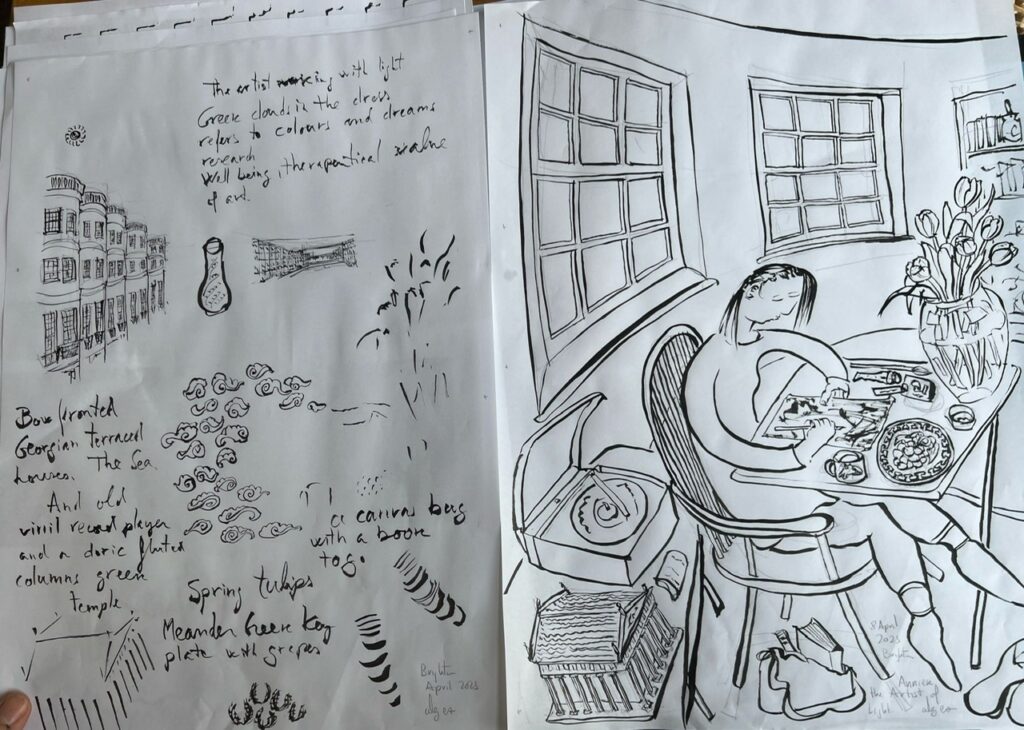 The artist working with light
Greek clouds in the dress
refers to colours and dreams
research
Well being, therapeutical value
of art.
Bow fronted
Georgian terraced
houses. The Sea.
And old
vinil record player
and a doric fluted
columns green
temple
a canvas bag
with a book
tog.
Spring tulips
Meander Greek Key
plate with grapes
Brighton
April 2023
8 April
2023
Brighton
Annick
the Artist of
Light